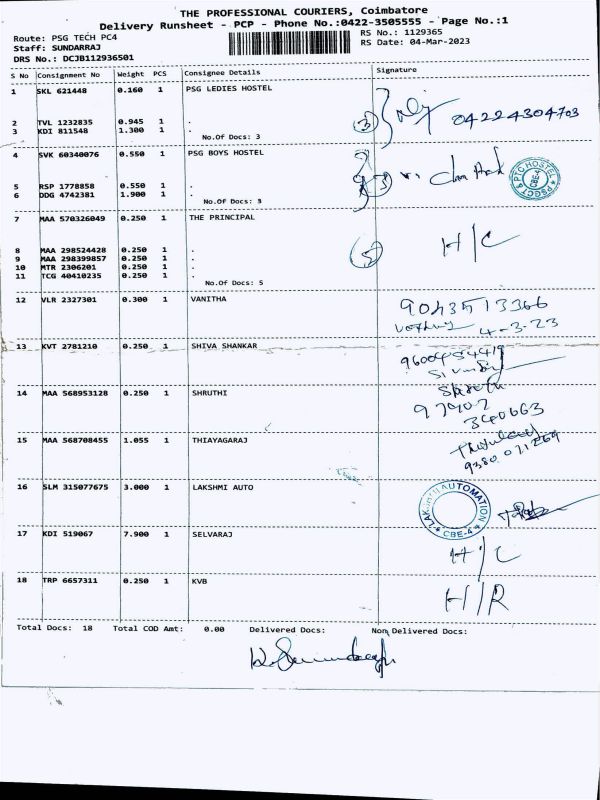 THE PROFESSIONAL COURIERS, Coimbatore
Delivery Runsheet - PCP - Phone No.:0422-3505555 - Page No.:1
Route: PSG TECH PC4
RS No.: 1129365
Staff: SUNDARRAJ
RS Date: 04-Mar-2023
DRS No.: DCJB112936501
S No Consignment No Weight PCS Consignee Details Signature
1 SKL 621448 0.160 1 PSG LEDIES HOSTEL
2 TVL 1232835 0.945 1 . 04224304703
3 KDI 811548 1.300 1 . (3)
No.Of Docs: 3
4 SVK 60340076 0.550 1 PSG BOYS HOSTEL
PSGCT & PTC HOSTEL CBE-4
5 RSP 1778858 0.550 1 . (3)
6 DDG 4742381 1.900 1 .
No.Of Docs: 3
7 MAA 570326049 0.250 1 THE PRINCIPAL
H/C
8 MAA 298524428 0.250 1 . (5)
9 MAA 298399857 0.250 1 .
10 MTR 2306201 0.250 1 .
11 TCG 40410235 0.250 1 .
No.Of Docs: 5
12 VLR 2327301 0.300 1 VANITHA 9043513366
4-3-23
13 KVT 2781210 0.250 1 SHIVA SHANKAR
14 MAA 568953128 0.250 1 SHRUTHI
97902
340663
15 MAA 568708455 1.055 1 THIAYAGARAJ
9380 071269
16 SLM 315077675 3.000 1 LAKSHMI AUTO
LAKSHMI AUTOMATION CBE-4
17 KDI 519067 7.900 1 SELVARAJ H/C
18 TRP 6657311 0.250 1 KVB H/R
Total Docs: 18 Total COD Amt: 0.00 Delivered Docs: Non Delivered Docs: